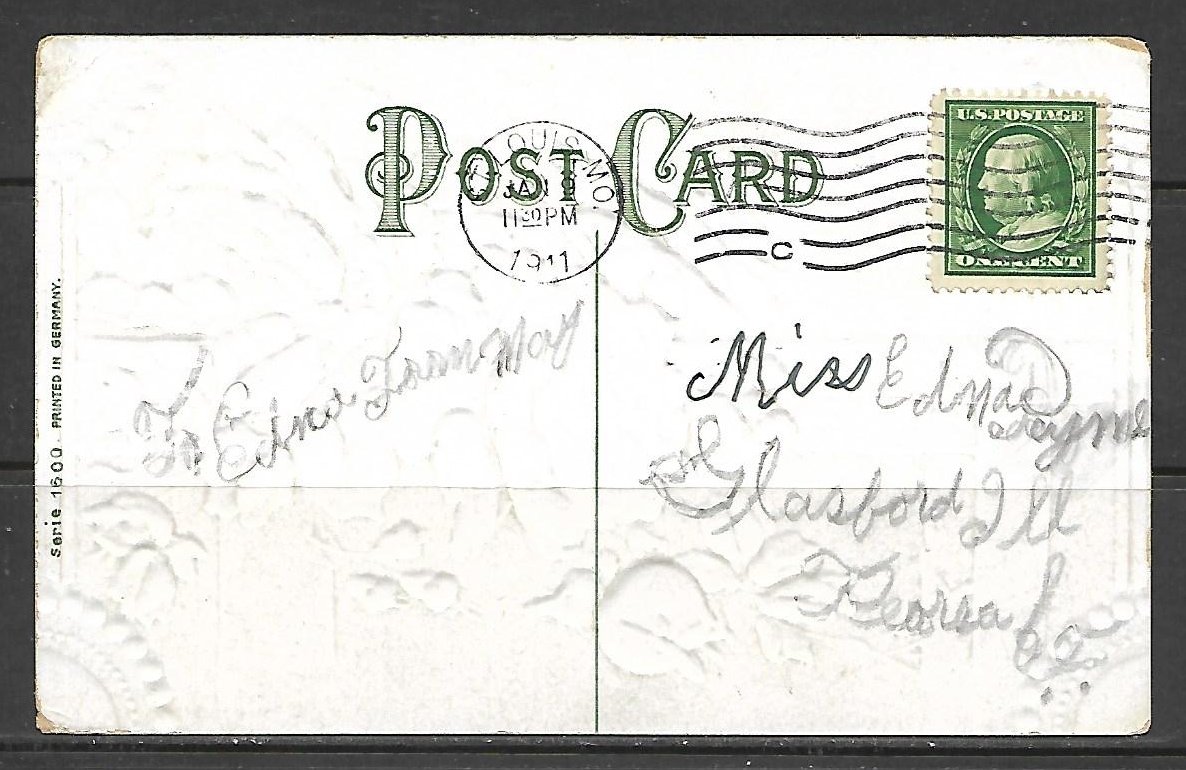 POST CARD
ST. LOUIS, MO.
JAN 9
11 30 PM
1911
C
U.S. POSTAGE
ONE CENT
Serie 1600 PRINTED IN GERMANY.
To Edna From May
Miss Edna Payne
Glasford Ill
Peoria Co.